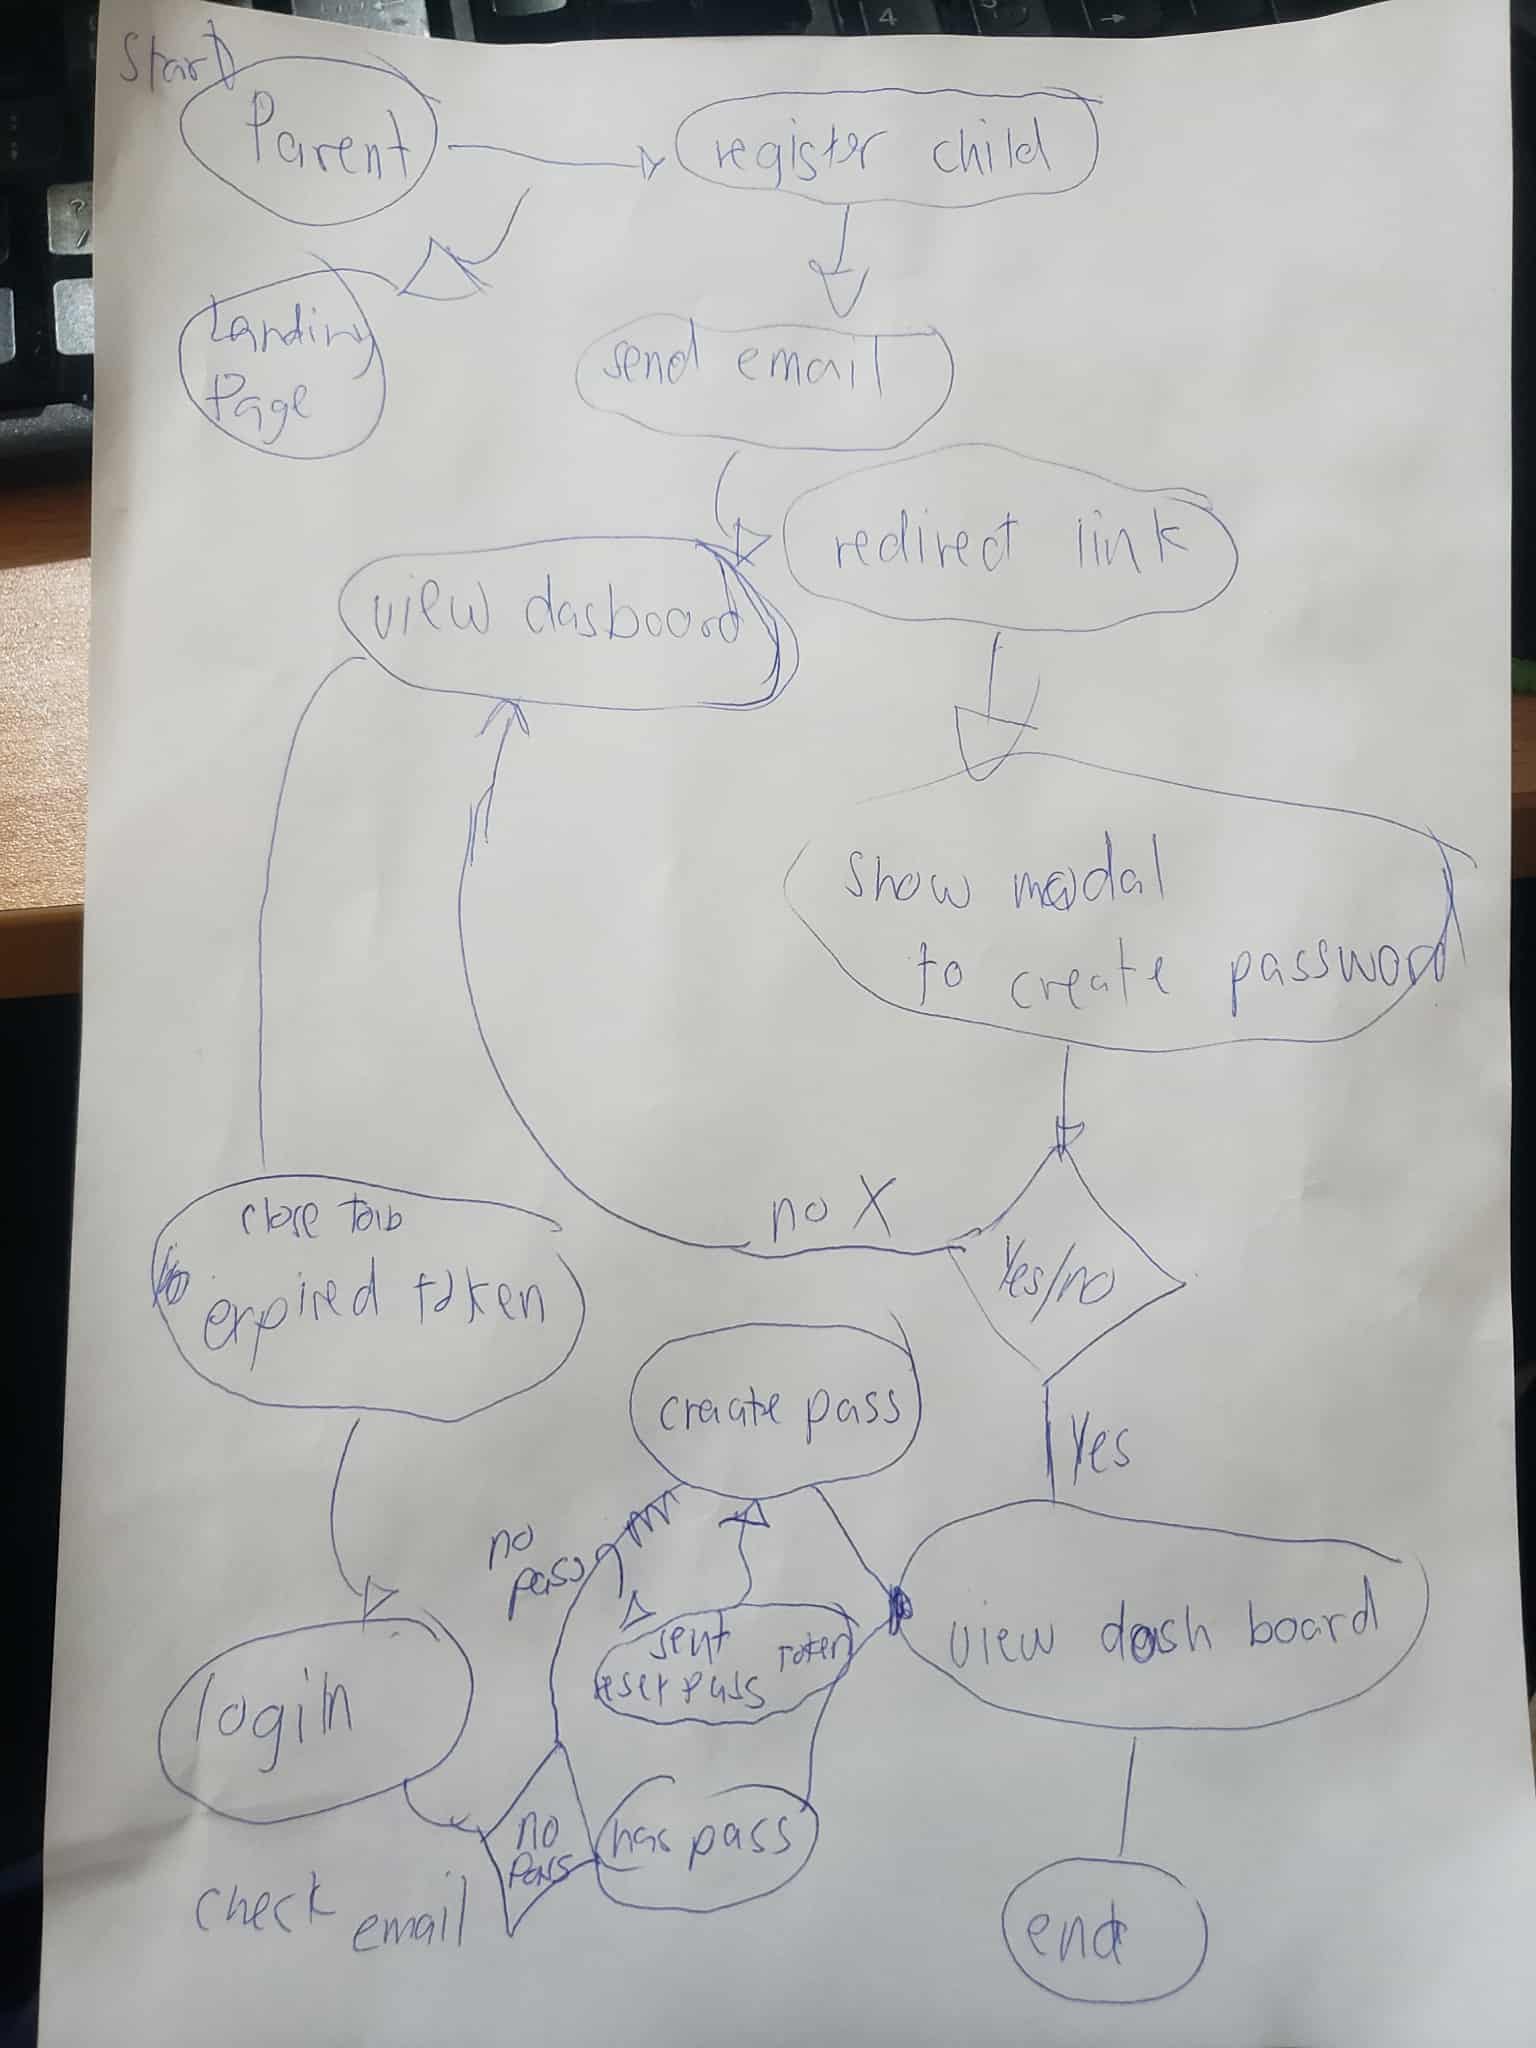 Start
Parent
register child
Landing
Page
send email
redirect link
view dasboard
show modal
to create password
no X
Yes/no
close tab
expired token
create pass
Yes
no
pass
sent token
reset pass
view dash board
login
no
pass
has pass
check email
end